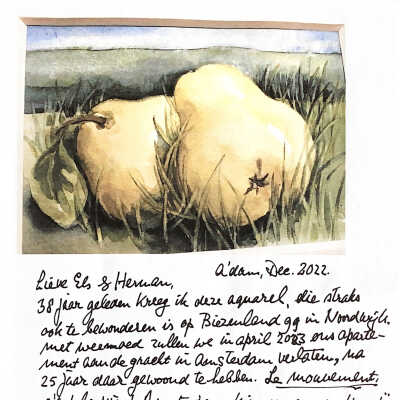 Lieve Els & Herman,
A'dam, Dec. 2022.
38 jaar geleden kreeg ik deze aquarel, die straks
ook te bewonderen is op Biezenland 99 in Noordwijk.
Met weemoed zullen we in april 2023 ons aparte-
ment aan de gracht in Amsterdam verlaten, na
25 jaar daar gewoond te hebben. Le mouvement,